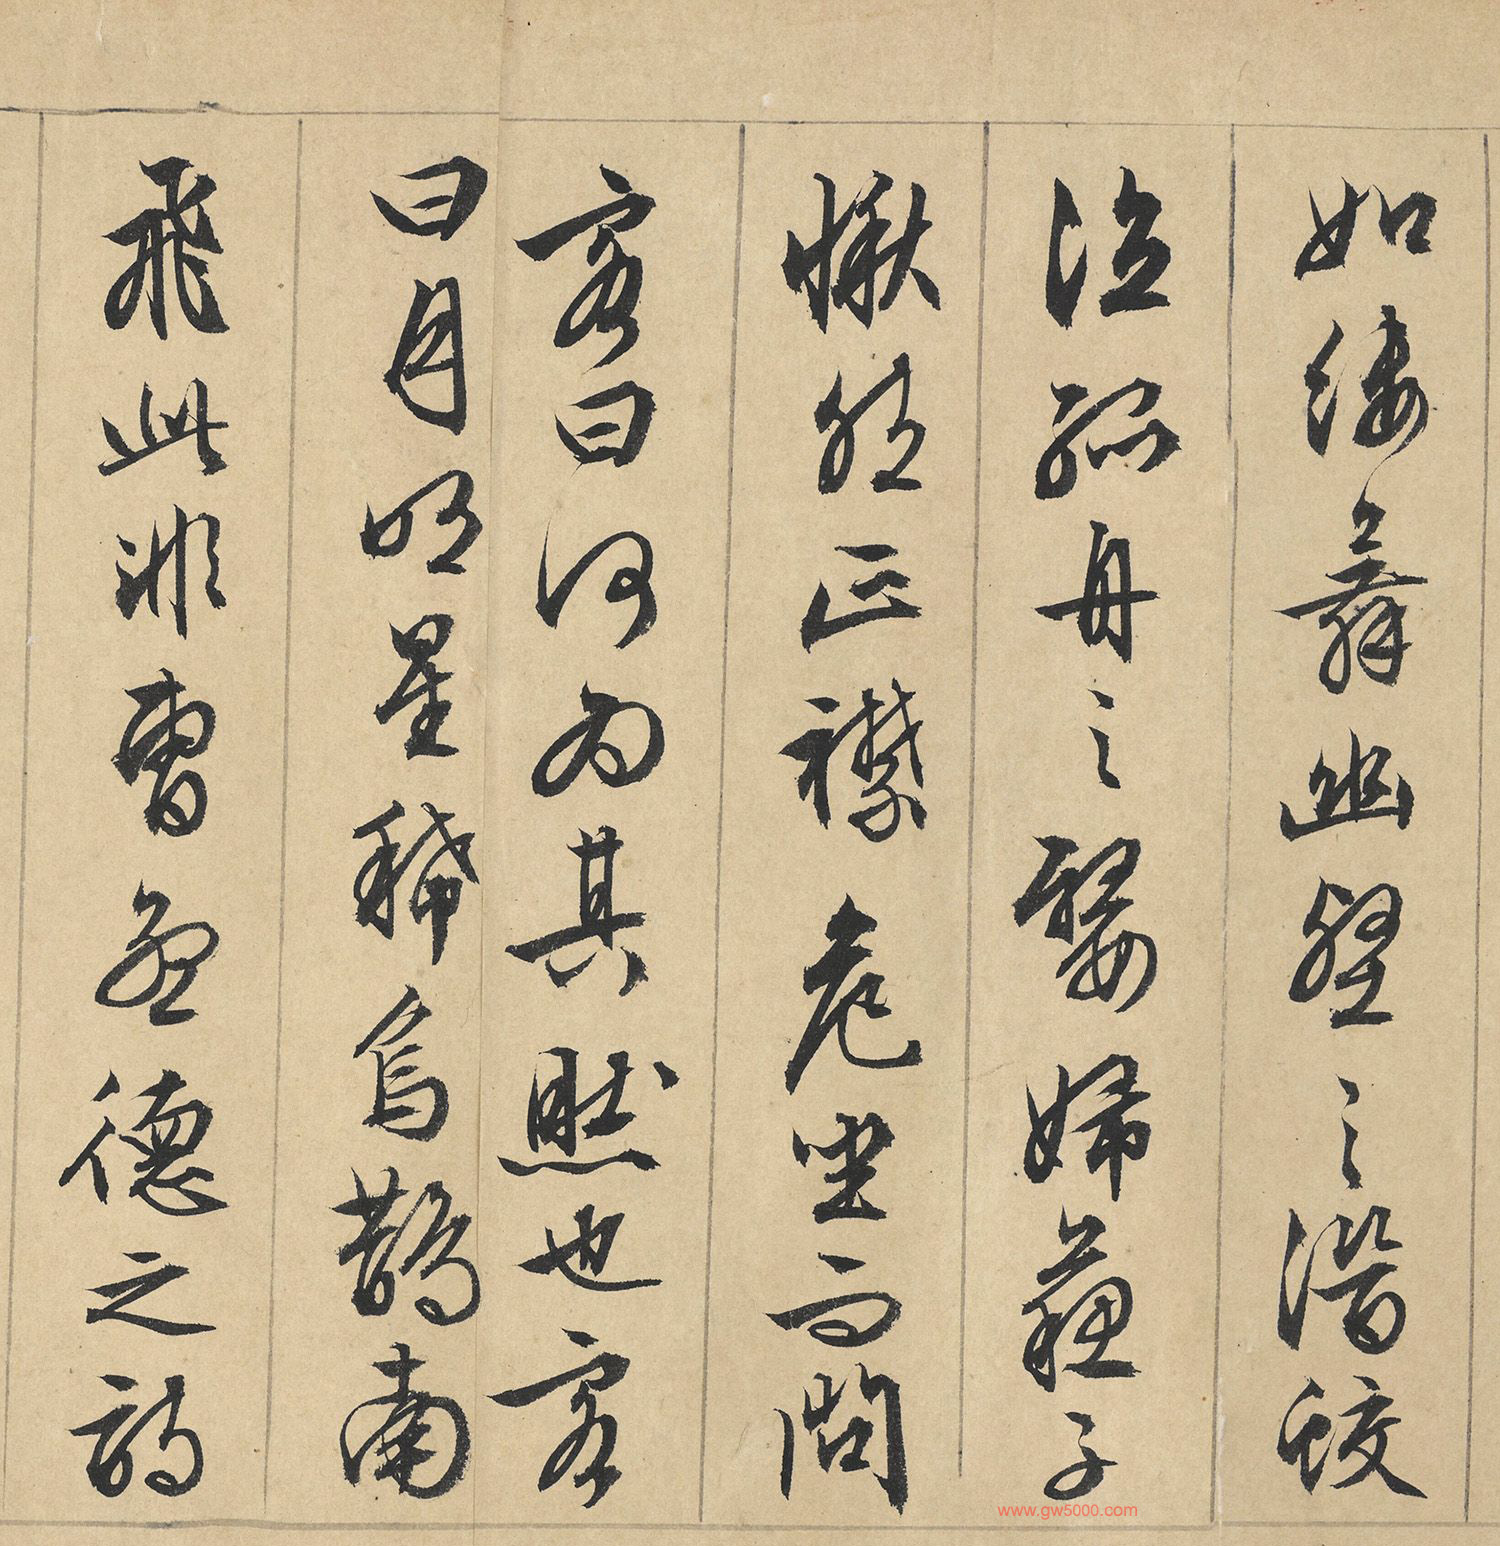 如縷舞幽壑之潛蛟
泣孤舟之嫠婦蘇子
愀然正襟危坐而問
客曰何為其然也客
曰月明星稀烏鵲南
飛此非曹孟德之詩
www.gw5000.com